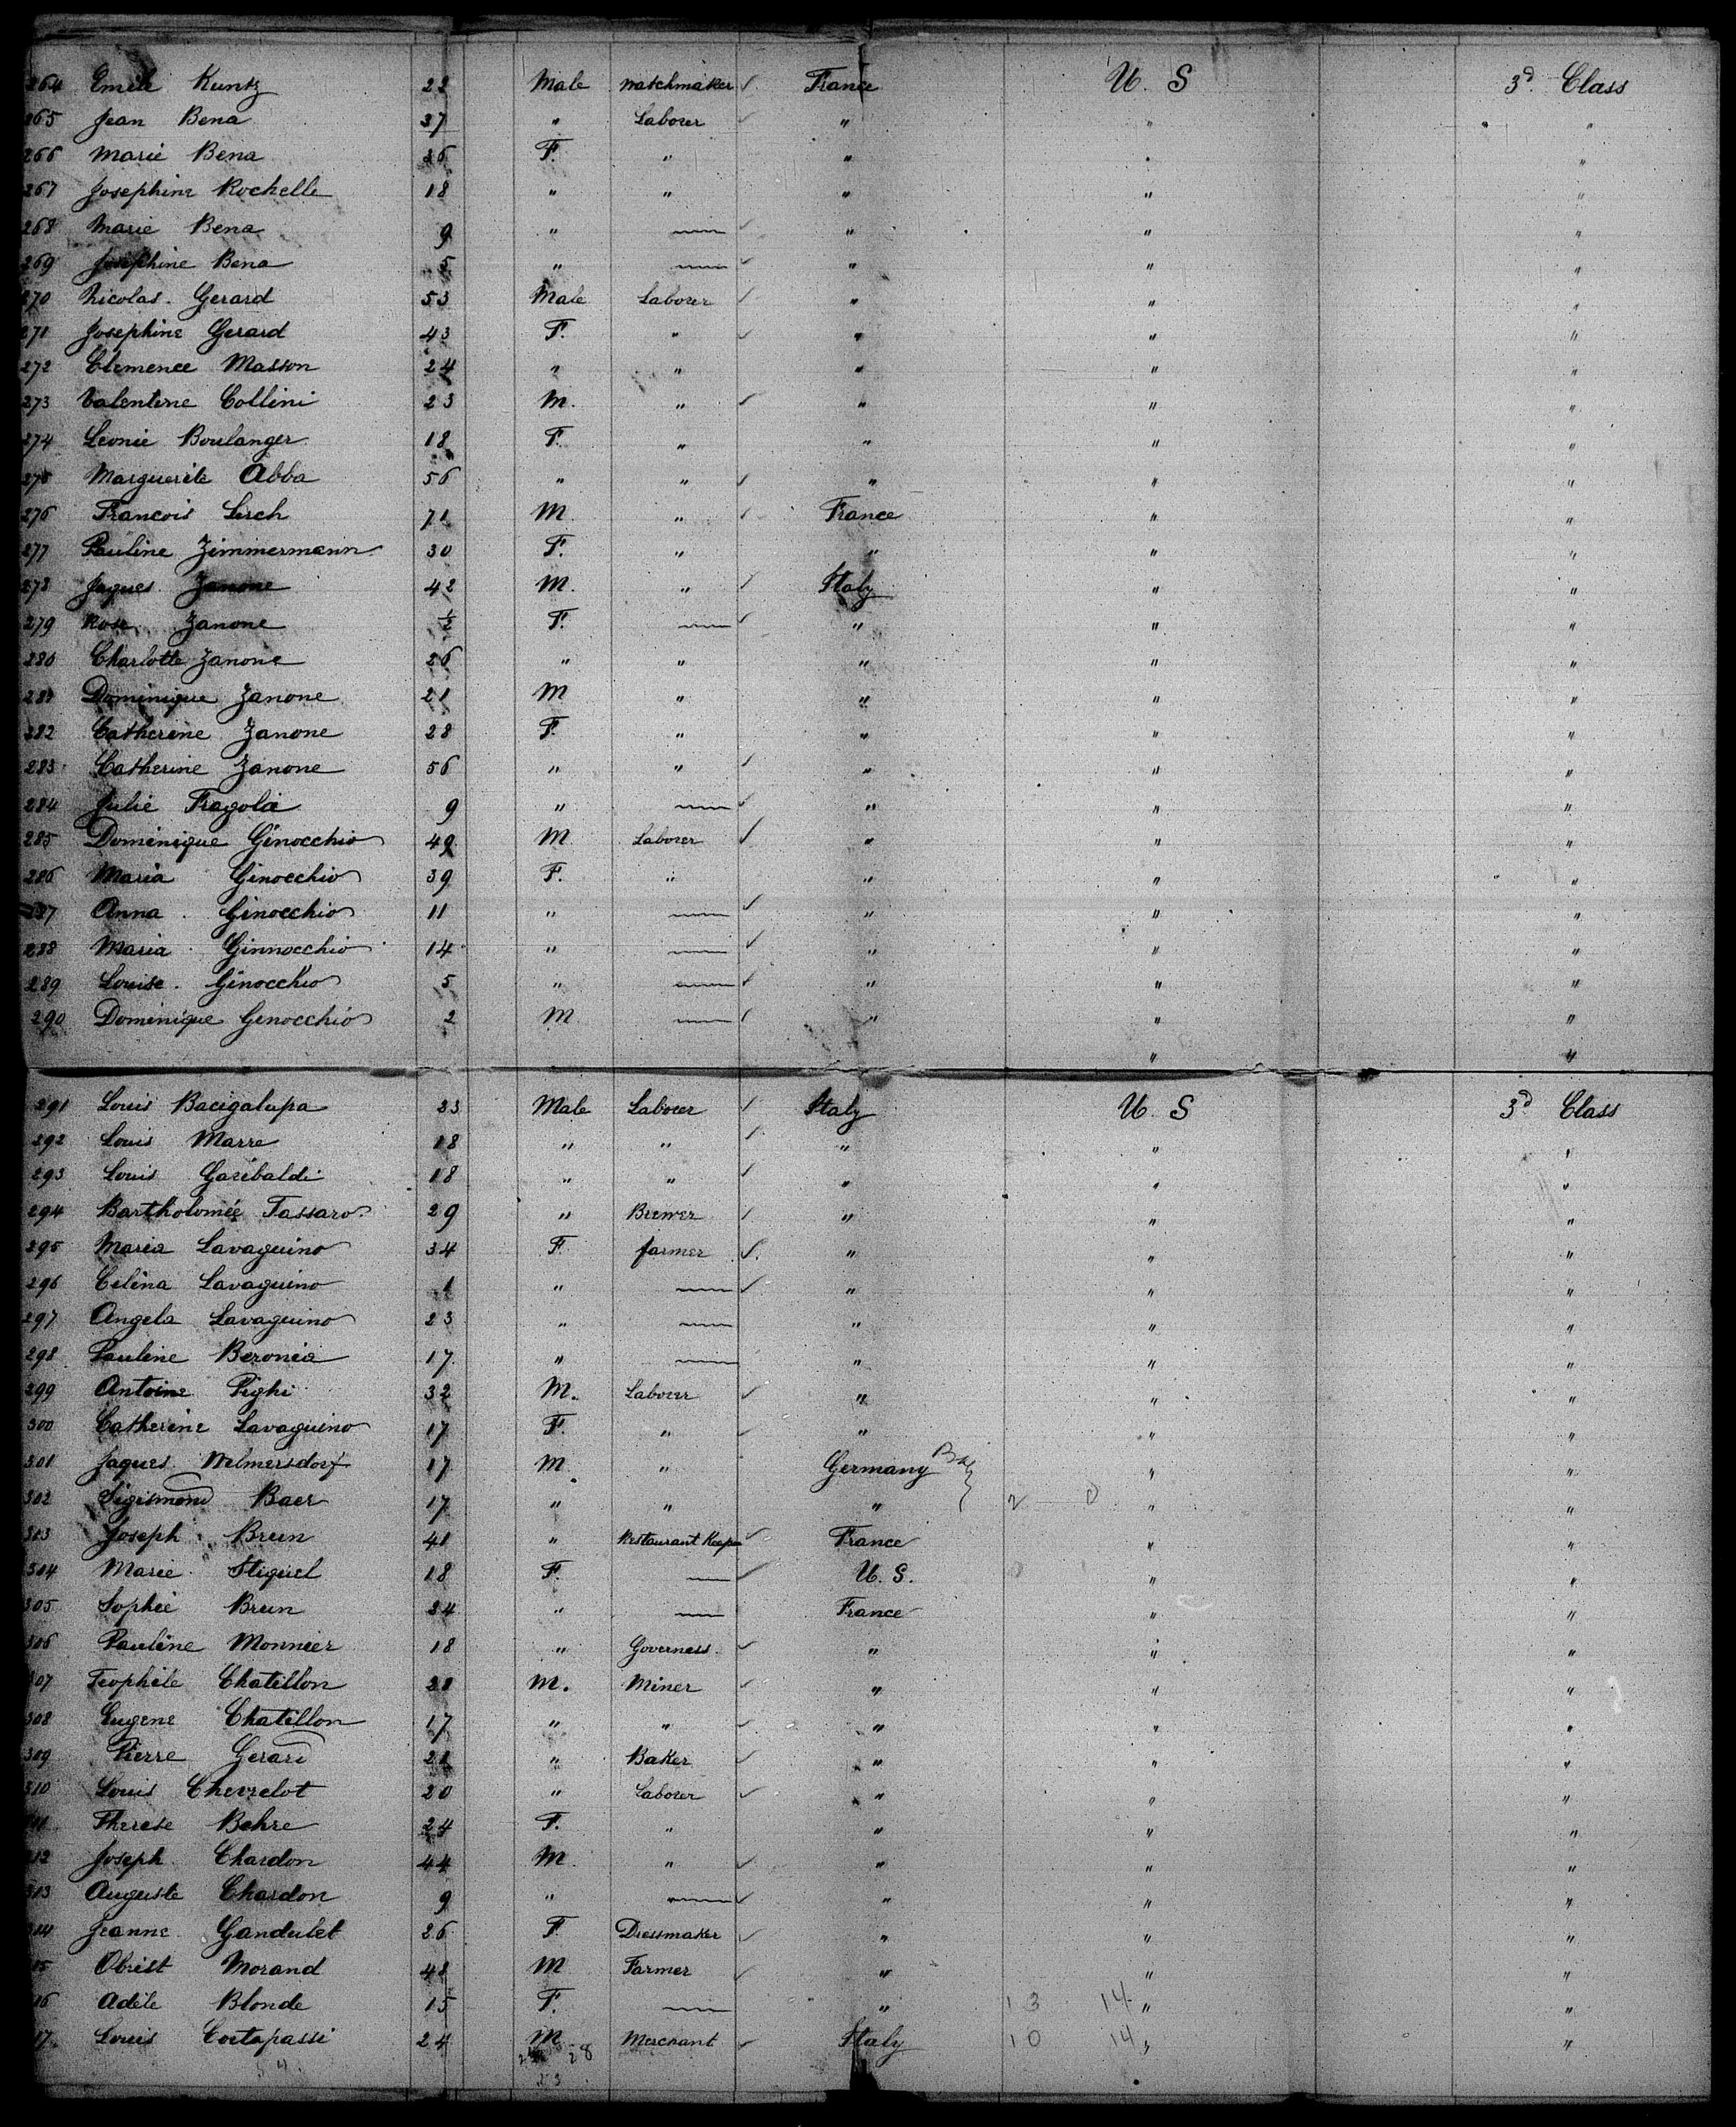 264 Emile Kuntz 22 Male Watchmaker ✓ France U. S 3d. Class
265 Jean Bena 37 " Laborer ✓ " " "
266 Marie Bena 26 F. " " " "
267 Josephine Rochelle 18 " " " " "
268 Marie Bena 9 " — ✓ " " "
269 Josephine Bena 5 " — ✓ " " "
270 Nicolas Gerard 53 Male Laborer ✓ " " "
271 Josephine Gerard 43 F. " ✓ " " "
272 Clemence Masson 24 " " " " "
273 Valentine Collini 23 M. " ✓ " " "
274 Leonie Boulanger 18 F. " " " "
275 Marguerite Abba 56 " " ✓ " " "
276 Francois Lerch 71 M " ✓ France " "
277 Pauline Zimmermann 30 F. " " " "
278 Jaques Zanone 42 M. " ✓ Italy " "
279 Rose Zanone ½ F. — ✓ " " "
280 Charlotte Zanone 26 " " " " "
281 Dominique Zanone 21 M " " " "
282 Catherine Zanone 28 F. " " " "
283 Catherine Zanone 56 " " ✓ " " "
284 Julie Fragola 9 " — ✓ " " "
285 Dominique Ginocchio 49 M Laborer ✓ " " "
286 Maria Ginocchio 39 F. " " " "
287 Anna Ginocchio 11 " — ✓ " " "
288 Maria Ginnocchio 14 " — ✓ " " "
289 Louise Ginocchio 5 " — ✓ " " "
290 Dominique Genocchio 2 M — ✓ " " "
" "
291 Louis Bacigalupa 23 Male Laborer ✓ Italy U. S 3d Class
292 Louis Marre 18 " " ✓ " " "
293 Louis Garibaldi 18 " " ✓ " " "
294 Bartholomée Tassaro 29 " Brewer ✓ " " "
295 Maria Lavaguino 34 F. farmer ✓ " " "
296 Celina Lavaguino 1 " — ✓ " " "
297 Angela Lavaguino 23 " — " " "
298 Pauline Beronia 17 " — " " "
299 Antoine Pighi 32 M. Laborer ✓ " " "
300 Catherine Lavaguino 17 F. " ✓ " " "
301 Jaques Welmersdorf 17 M " Germany " "
302 Sigismond Baer 17 " " " 2 0 " "
303 Joseph Brun 41 " Restaurant Keeper ✓ France " "
304 Marie Stiquel 18 F. — ✓ U. S. " "
305 Sophie Brun 24 " — France " "
306 Pauline Monnier 18 " Governess ✓ " " "
307 Teophile Chatillon 21 M. Miner ✓ " " "
308 Eugene Chatillon 17 " " ✓ " " "
309 Pierre Gerard 21 " Baker ✓ " " "
310 Louis Chevrelot 20 " Laborer ✓ " " "
311 Therese Behre 24 F. " " " "
312 Joseph Chardon 44 M. " ✓ " " "
313 Auguste Chardon 9 " — ✓ " " "
314 Jeanne Gandulet 26 F Dressmaker ✓ " " "
315 Obrist Morand 48 M Farmer ✓ " " "
316 Adèle Blonde 15 F. — " 13 14 " "
317 Louis Cortapassi 24 M Merchant ✓ Italy 10 14 " "
28
23